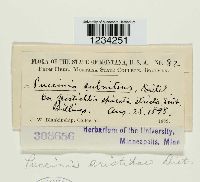 1234251
FLORA OF THE STATE OF MONTANA, U. S. A. No. 82
FROM HERB. MONTANA STATE COLLEGE, BOZEMAN.
Puccinia subnitens, Diet.
On Distichlis spicata stricta
Billings. Aug. 23, 1898.
J. W. Blankinship, Collector. 1898.
303656
Herbarium of the University,
Minneapolis, Minn
Puccinia aristidae